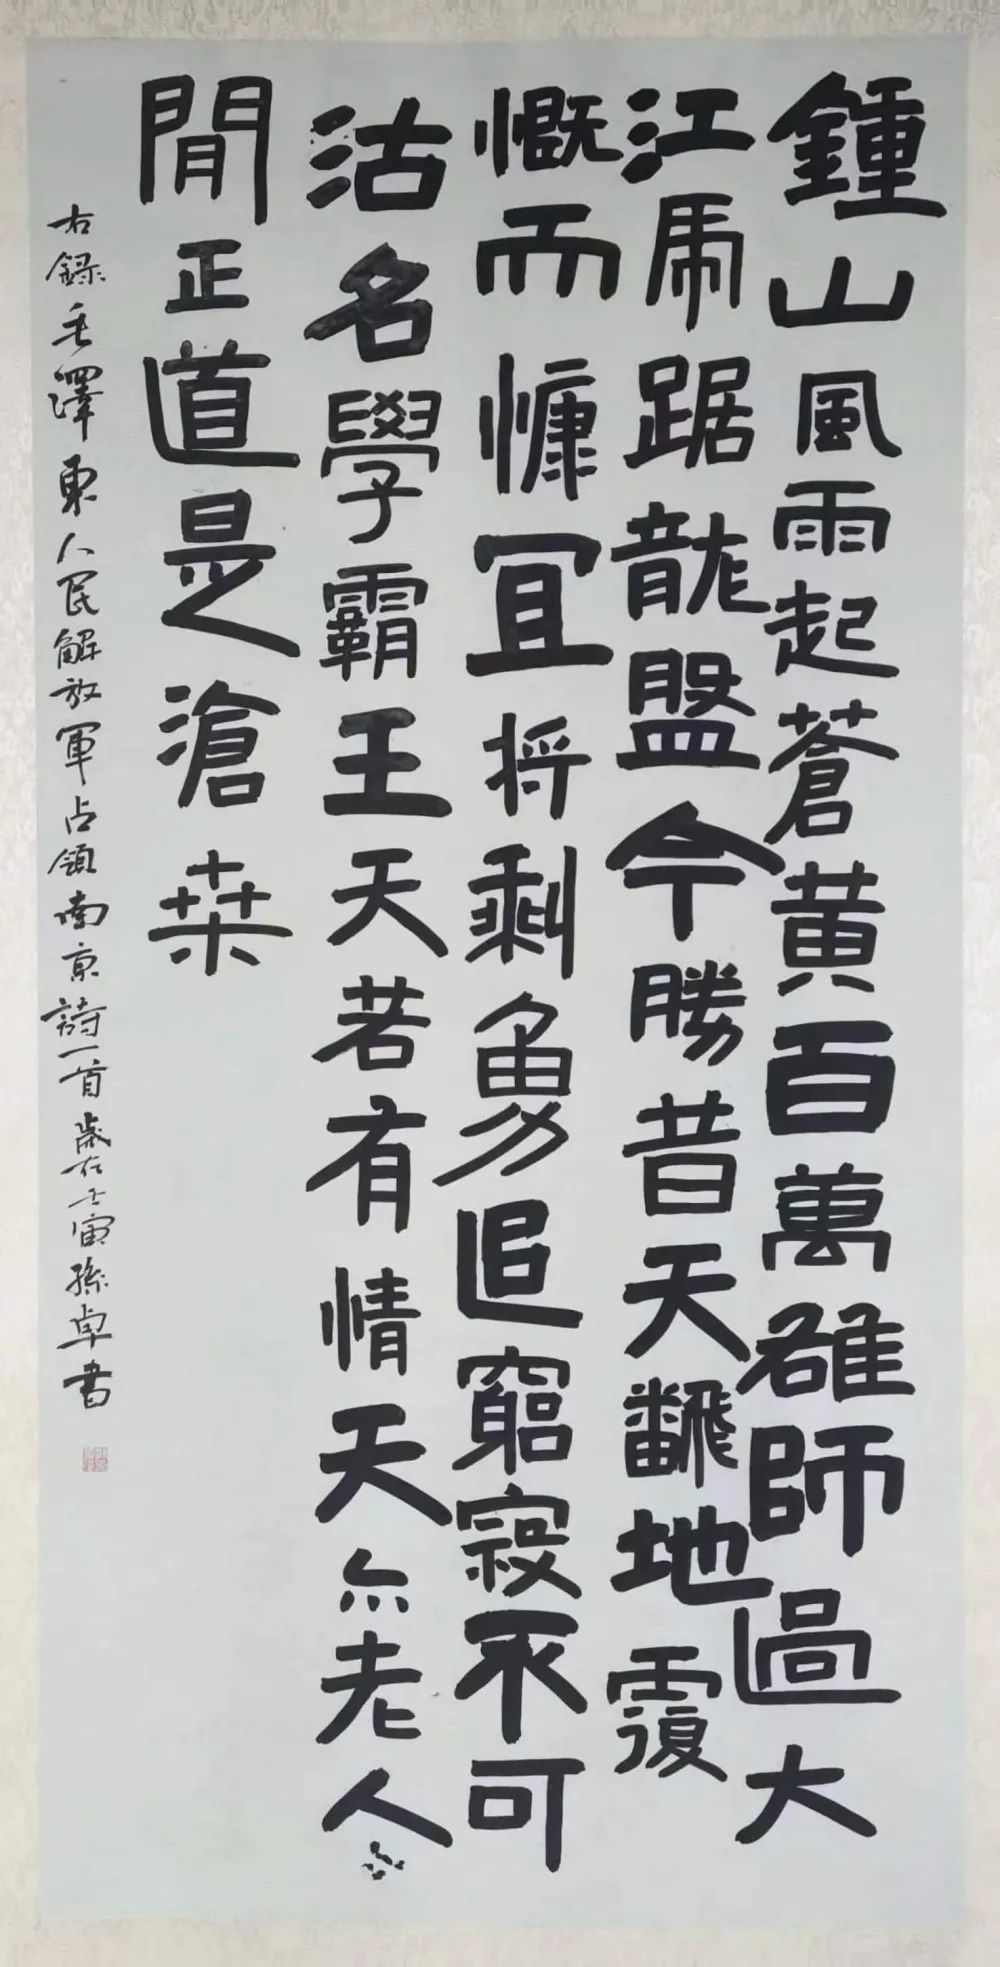 鍾山風雨起蒼黄百萬雄師過大
江虎踞龍盤今勝昔天飜地覆
慨而慷冝將剩勇追窮寇不可
沽名學霸王天若有情天亦老人
閒正道是滄桒
右録毛澤東人民解放軍占領南京詩一首歲在壬寅孫卓書